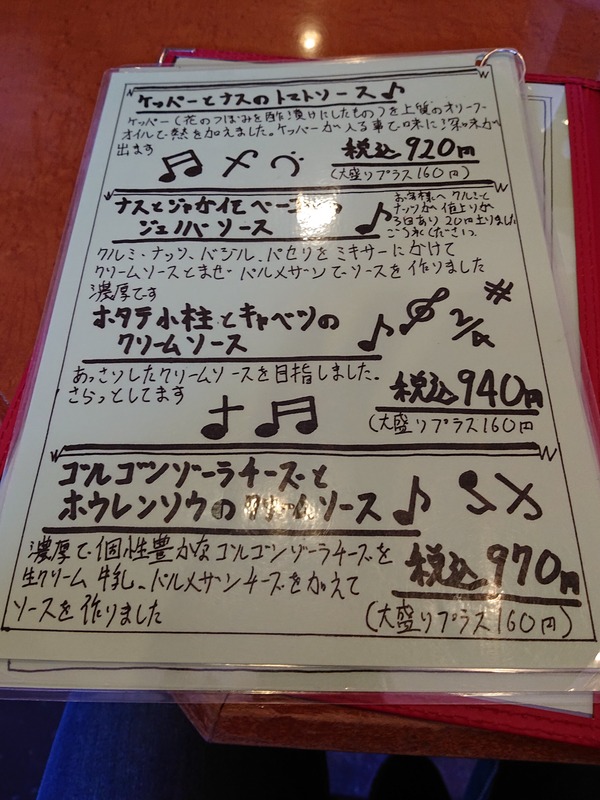 ケッパーとナスのトマトソース♪
ケッパー(花のつぼみを酢漬けにしたもの)を上質のオリーブ
オイルで熱を加えました。ケッパーが入る事で味に深味が
出ます
税込920円
(大盛りプラス160円)
ナスとジャガイモ ベーコンの
ジェノバソース
お客様へ クルミと
ナッツが 値上りが
20円上りました
ご了承ください。
クルミ・ナッツ、バジル、パセリをミキサーにかけて
クリームソースとまぜ パルメザンでソースを作りました
濃厚です
ホタテ小柱とキャベツの
クリームソース♪
2/4
あっさりしたクリームソースを目指しました。
さらっとしてます
税込940円
(大盛りプラス160円
ゴルゴンゾーラチーズと
ホウレンソウのクリームソース♪
濃厚で個性豊かなゴルゴンゾーラチーズを
生クリーム 牛乳、パルメザンチーズをかえて
ソースを作りました
税込970円
(大盛りプラス160円)